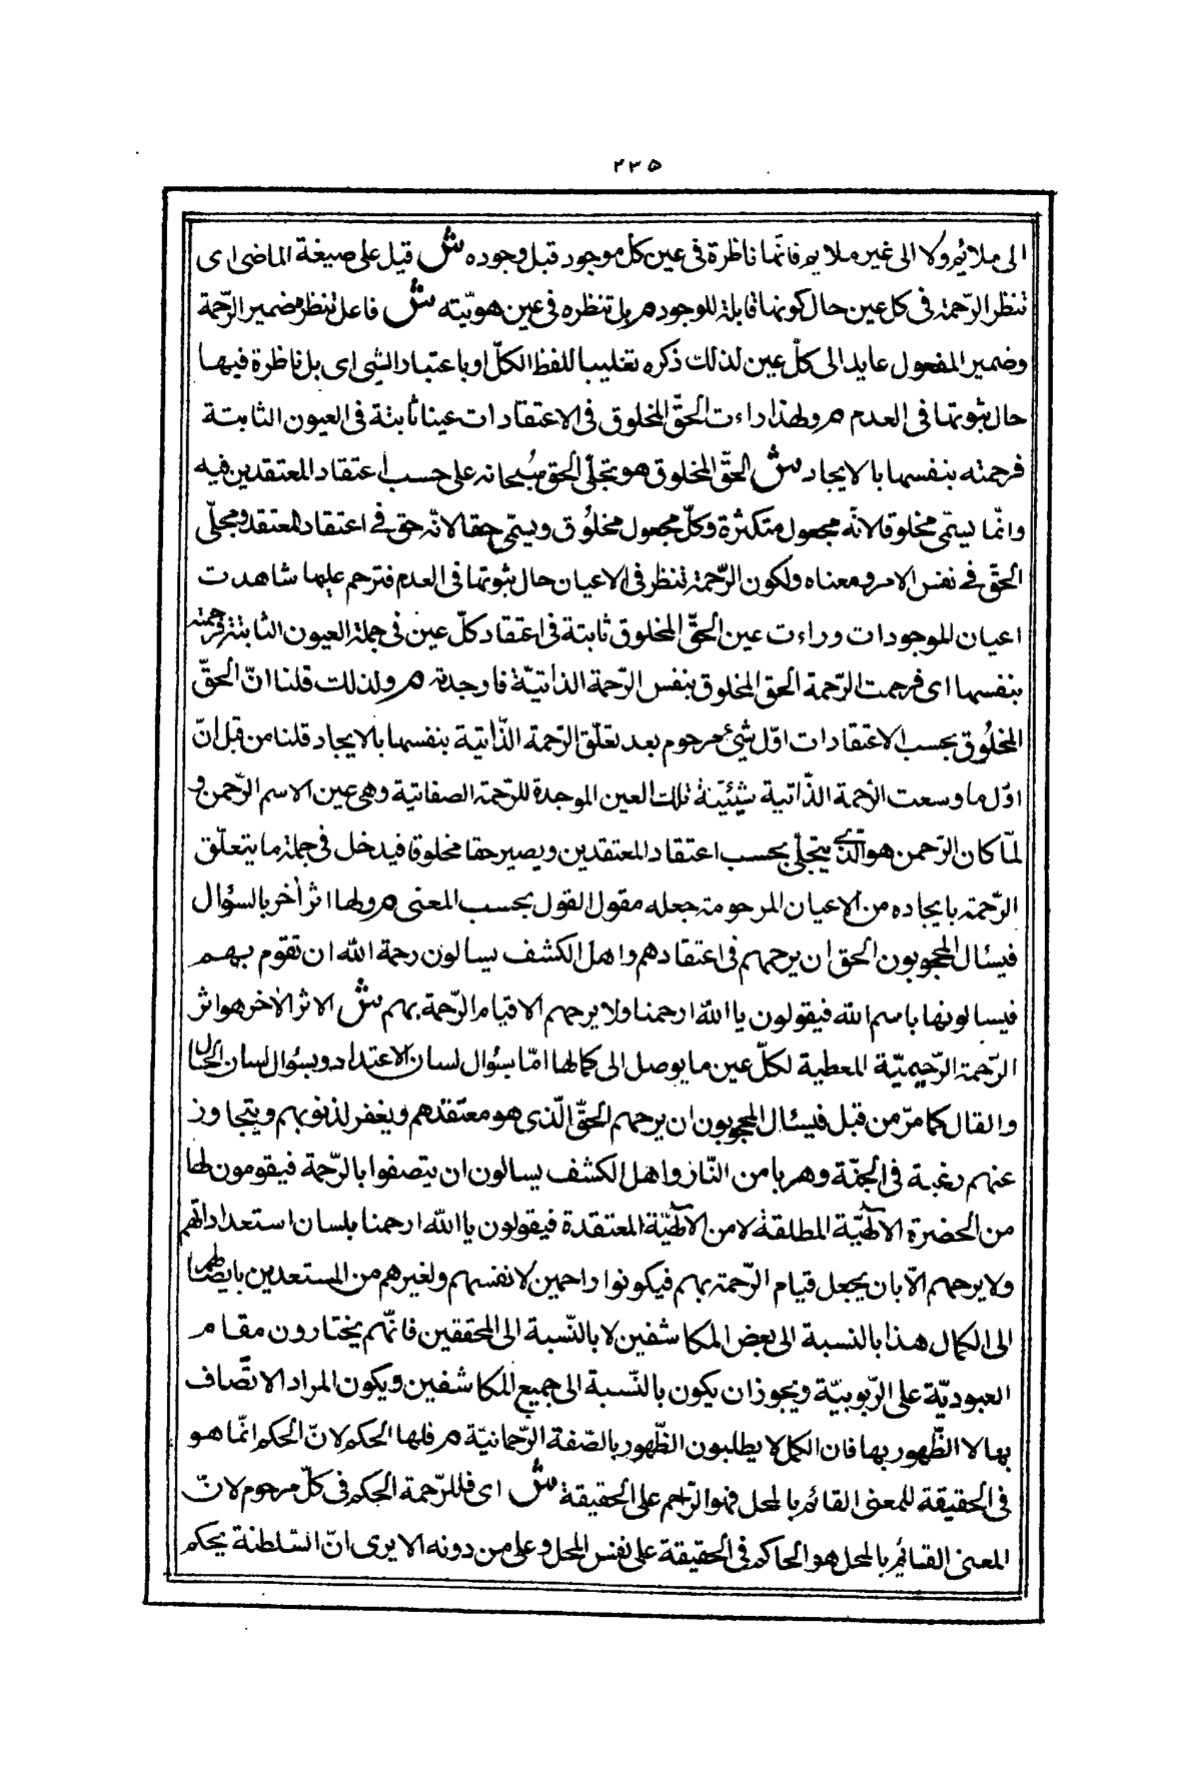 ۲۳۵
الى ملائم ولا الى غير ملايم فانّها ناظرة فى عين كلّ موجود قبل وجوده ش قيل على صيغة الماضى اى
تنظر الرّحمة فى كل عين حال كونها قابلة للوجود م بل تنظره فى عين هويّته ش فاعل تنظر ضمير الرّحمة
وضمير المفعول عايد الى كلّ عين لذلك ذكره تغليبا للفظ الكلّ او باعتبار الشئ اى بل ناظرة فيها
حال ثبوتها فى العدم م ولهذا راءت الحقّ المخلوق فى الاعتقادات عينا ثابتة فى العيون الثابتة
فرحمته بنفسها بالايجاد ش الحقّ المخلوق هو تجلّى الحق سُبحانه على حسب اعتقاد المعتقدين فيه
وانّما يسمّى مخلوقا لانّه مجعول متكثرة وكلّ مجعول مخلُوق ويسمّى حقا لانّه حق فى اعتقاد المعتقد ومجلّى
الحقّ فى نفس الامر ومعناه ولكون الرّحمة تنظر فى الاعيان حال ثبوتها فى العدم فترحم عليها شاهدت
اعيان الموجودات وراءت عين الحقّ المخلوق ثابتة فى اعتقاد كلّ عين فى جملة العيون الثابتة فرحمته
بنفسها اى فرحمت الرّحمة الحق المخلوق بنفس الرّحمة الذاتيّة فاوجدته م ولذلك قلنا انّ الحقّ
المخلُوق بحسب الاعتقادات اوّل شئ مرحوم بعد تعلّق الرّحمة الذّاتية بنفسها بالايجاد قلنا من قبل انّ
اوّل ما وسعت الرّحمة الذّاتية شيئيّة تلك العين الموجدة للرّحمة الصفاتية وهى عين الاسم الرّحمن و
لمّا كان الرّحمن هو الّذى يتجلّى بحسب اعتقاد المعتقدين ويصير حقا مخلوقا فيدخل فى جملة ما يتعلّق
الرّحمة بايجاده من الاعيان المرحومة جعله مقول القول بحسب المعنى م ولها اثر أخر بالسؤال
فيسئال المحجوبون الحق ان يرحمهم فى اعتقادهم واهل الكشف يسالون رحمة الله ان تقوم بهم
فيسالونها باسم الله فيقولون يا الله ارحمنا ولا يرحمهم الا قيام الرّحمة بهم ش الاثر الأخر هو اثر
الرّحمة الرّحيميّة المعطية لكلّ عين ما يوصل الى كمالها امّا بسؤال لسان الاعتداد وبسؤال لسان الحال
والقال كما مرّ من قبل فيسئال المحجوبون ان يرحمهم الحقّ الّذى هو معتقدهم ويغفر لذنوبهم ويتجاوز
عنهم رغبة فى الجنّة وهربا من النّار واهل الكشف يسالون ان يتصفوا بالرّحمة فيقومون لها
من الحضرة الآلهيّة المطلقة لا من الآلهيّة المعتقدة فيقولون يا الله ارحمنا بلسان استعداداتهم
ولا يرحمهم الّا بان يجعل قيام الرّحمة بهم فيكونوا راحمين لانفسهم ولغيرهم من المستعدين بايصالهم
الى الكمال هذا بالنسبة الى بعض المكاشفين لا بالنّسبة الى المحققين فانّهم يختارون مقام
العبوديّة على الرّبوبيّة ويجوز ان يكون بالنّسبة الى جميع المكاشفين ويكون المراد الاتّصاف
بها لا الظّهور بها فان الكمل لا يطلبون الظّهور بالصّفة الرّحمانيّة م فلها الحكم لانّ الحكم انّما هو
فى الحقيقة للمعنى القائم بالمحل فهو الرّاحم على الحقيقة ش اى فللرّحمة الحكم فى كلّ مرحوم لانّ
المعنى القائم بالمحل هو الحاكم فى الحقيقة على نفس المحل وعلى من دونه الا يرى انّ السّلطنة يحكم